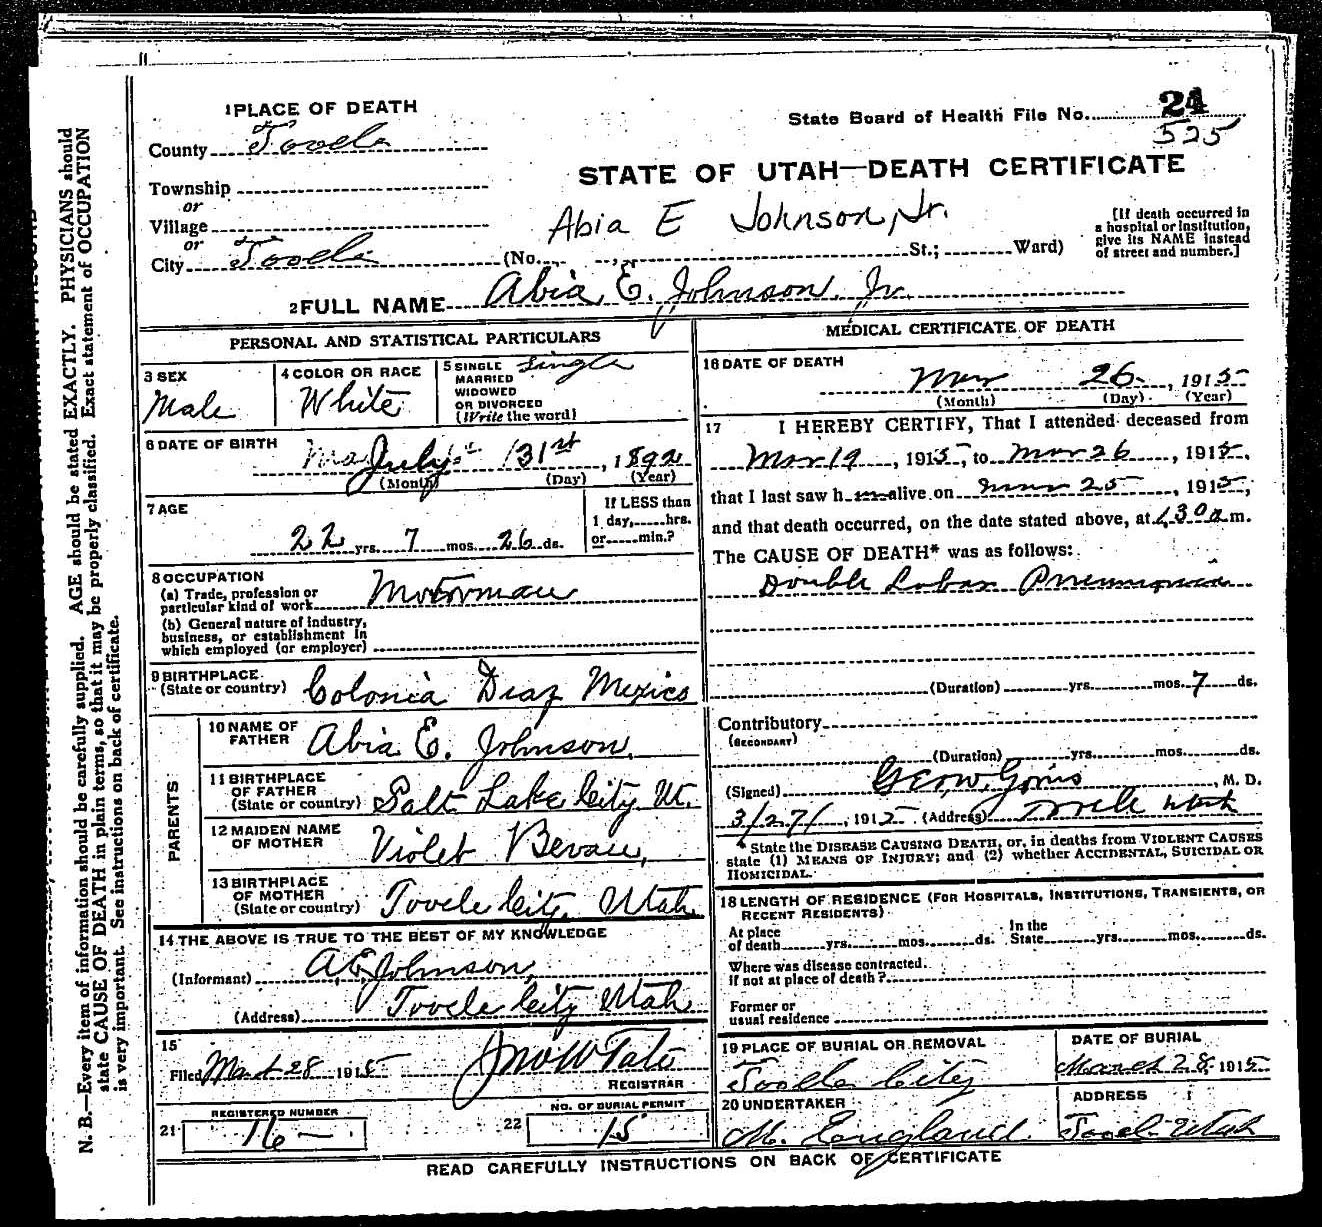 1 PLACE OF DEATH
County Tooele
Township
or
Village
or
City Tooele
State Board of Health File No. 24
525
STATE OF UTAH—DEATH CERTIFICATE
Abia E Johnson, Jr.
(No. St.; Ward)
[If death occurred in
a hospital or institution,
give its NAME instead
of street and number.]
2 FULL NAME Abia E. Johnson Jr.
PERSONAL AND STATISTICAL PARTICULARS
3 SEX
Male
4 COLOR OR RACE
White
5 SINGLE
MARRIED
WIDOWED
OR DIVORCED
(Write the word)
Single
6 DATE OF BIRTH
July 31st, 1892
(Month) (Day) (Year)
7 AGE
22 yrs. 7 mos. 26 ds.
If LESS than
1 day, hrs.
or min.?
8 OCCUPATION
(a) Trade, profession or
particular kind of work Motorman
(b) General nature of industry,
business, or establishment in
which employed (or employer)
9 BIRTHPLACE
(State or country) Colonia Diaz Mexico
PARENTS
10 NAME OF
FATHER Abia E. Johnson,
11 BIRTHPLACE
OF FATHER
(State or country) Salt Lake City Ut.
12 MAIDEN NAME
OF MOTHER Violet Bevan,
13 BIRTHPLACE
OF MOTHER
(State or country) Tooele City, Utah
14 THE ABOVE IS TRUE TO THE BEST OF MY KNOWLEDGE
(Informant) A.E. Johnson,
(Address) Tooele City Utah
15
Filed March 28 1915 Jno W Tate
REGISTRAR
REGISTERED NUMBER
21 16 —
NO. OF BURIAL PERMIT
22 15
MEDICAL CERTIFICATE OF DEATH
16 DATE OF DEATH
Mar 26, 1915
(Month) (Day) (Year)
17 I HEREBY CERTIFY, That I attended deceased from
Mar 19, 1915, to Mar 26, 1915,
that I last saw h im alive on Mar 25, 1915,
and that death occurred, on the date stated above, at 1.30 a m.
The CAUSE OF DEATH* was as follows:
Double Lobar Pneumonia
(Duration) yrs. mos. 7 ds.
Contributory
(SECONDARY)
(Duration) yrs. mos. ds.
(Signed) Geo. W., M. D.
3/27/, 1915 (Address) Tooele Utah
* State the DISEASE CAUSING DEATH, or, in deaths from VIOLENT CAUSES
state (1) MEANS OF INJURY; and (2) whether ACCIDENTAL, SUICIDAL OR
HOMICIDAL.
18 LENGTH OF RESIDENCE (FOR HOSPITALS, INSTITUTIONS, TRANSIENTS, OR
RECENT RESIDENTS)
At place
of death yrs. mos. ds.
In the
State yrs. mos. ds.
Where was disease contracted.
if not at place of death?
Former or
usual residence
19 PLACE OF BURIAL OR REMOVAL
Tooele City
DATE OF BURIAL
March 28 1915
20 UNDERTAKER
M. England
ADDRESS
Tooele Utah
READ CAREFULLY INSTRUCTIONS ON BACK OF CERTIFICATE
N. B.—Every item of information should be carefully supplied. AGE should be stated EXACTLY. PHYSICIANS should
state CAUSE OF DEATH in plain terms, so that it may be properly classified. Exact statement of OCCUPATION
is very important. See instructions on back of certificate.